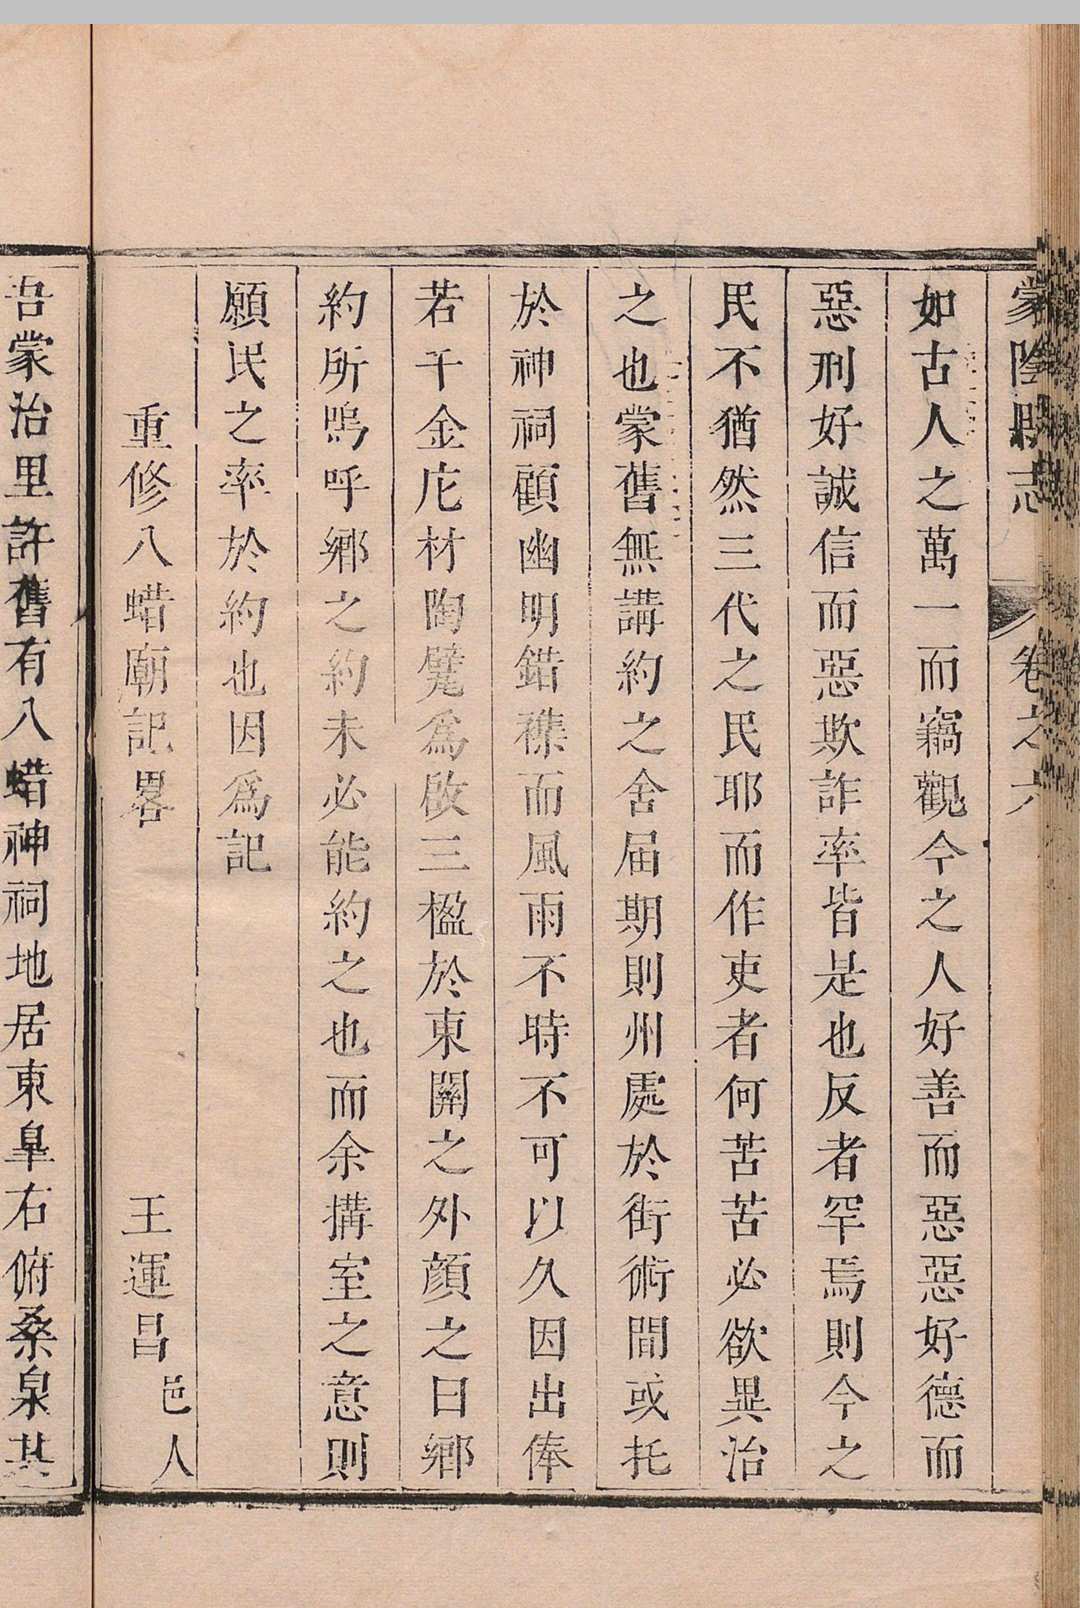 蒙陰縣志 卷之六
如古人之萬一而竊觀今之人好善而惡惡好德而
惡刑好誠信而惡欺詐率皆是也反者罕焉則今之
民不猶然三代之民耶而作吏者何苦苦必欲異治
之也蒙舊無講約之舍届期則州處於街術間或托
於神祠顧幽明錯襍而風雨不時不可以久因出俸
若干金庀材陶甓爲啟三楹於東關之外顔之曰鄉
約所嗚呼鄉之約未必能約之也而余搆室之意則
願民之率於約也因爲記
重修八蜡廟記畧 王運昌邑人
吾蒙治里許舊有八蜡神祠地居東臯右俯桑泉其